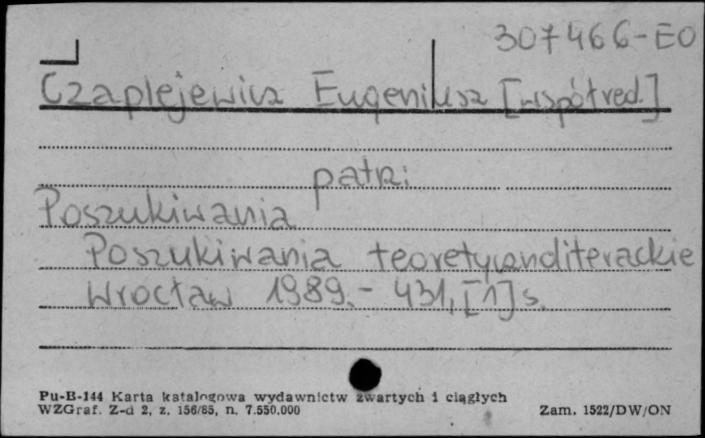 307466-EO
Czaplejewicz Eugeniusz [współred.]
patrz:
Poszukiwania
Poszukiwania teoretycznoliterackie
Wrocław 1989.- 431, [1] s.
Pu-B-144 Karta katalogowa wydawnictw zwartych i ciągłych
WZGraf. Z-d 2, z. 156/85, n. 7.550.000
Zam. 1522/DW/ON